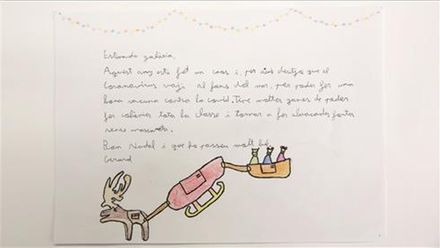 Estimada galàxia,
Aquest any està fet un caos i, per això desitjo que el
coronavirus vagi al fons del mar, per poder fer una
bona vacuna contra la covid. Tinc moltes ganes de poder
fer colònies tota la classe i tornar a fer abraçades fortes
sense mascareta.
Bon Nadal i que ho passeu molt bé,
Gerard